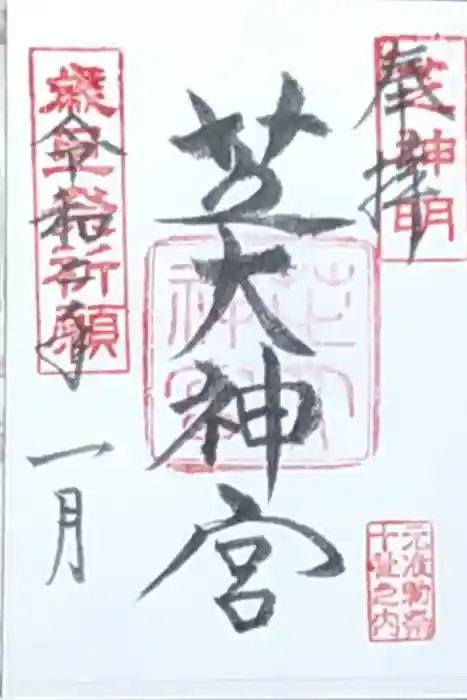 奉拝
芝神明
芝大神宮
芝大神宮
元准勅祭
十社之内
令和六年
一月
祈願